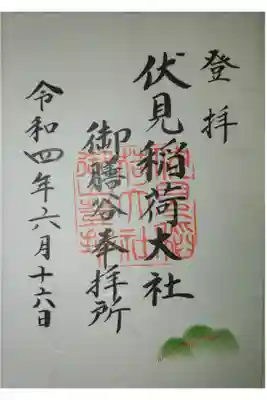 登拝
伏見稲荷大社
御膳谷奉拝所
令和四年六月十六日